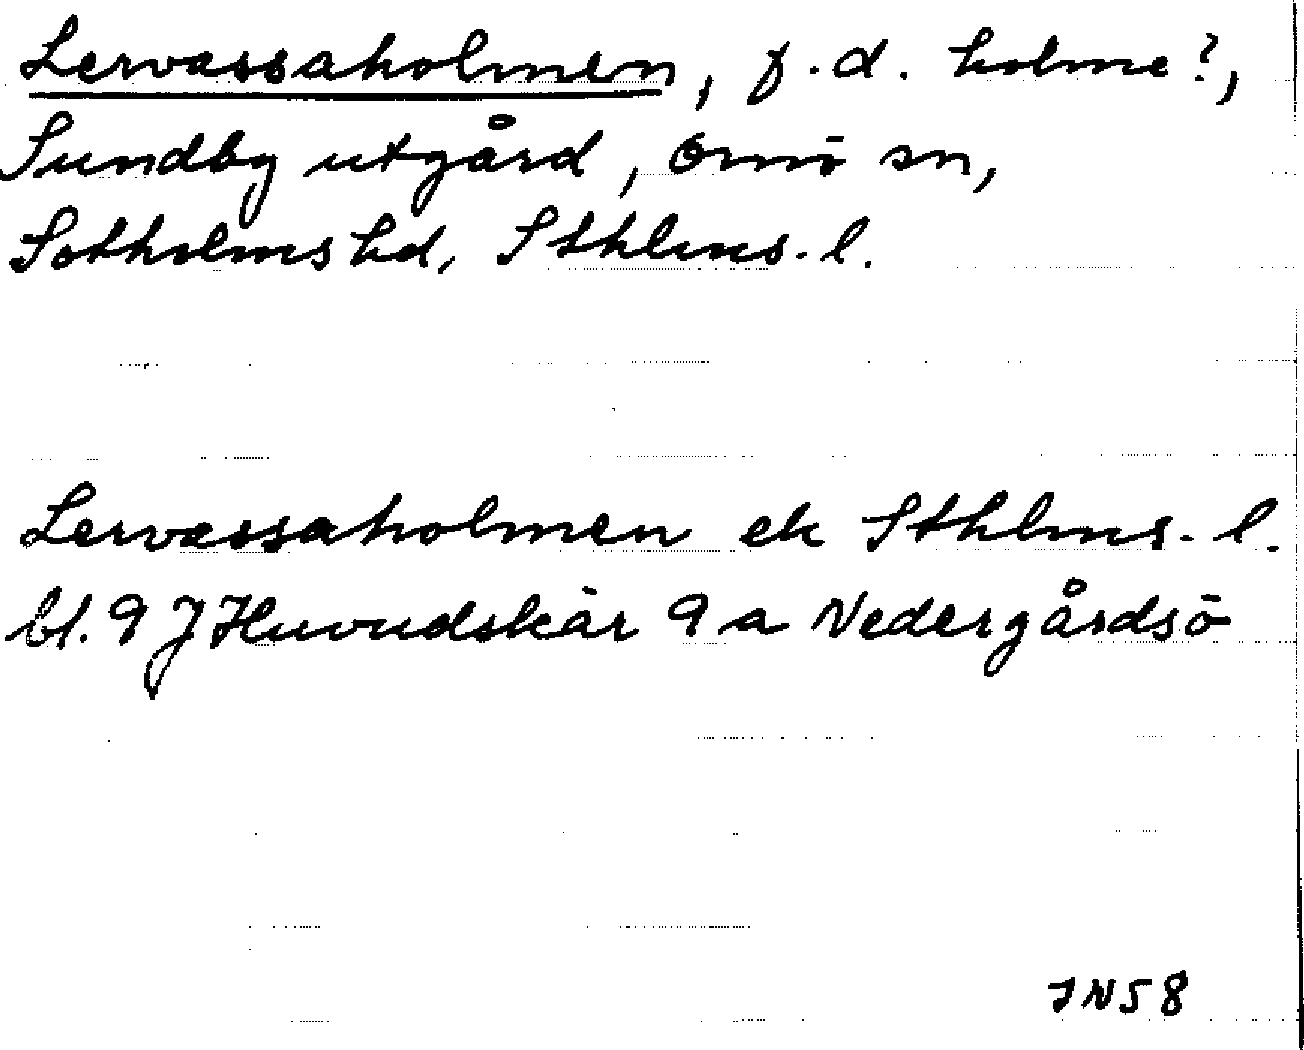 Lervassaholmen, f.d. holme?,
Sundby utgård, Ornö sn,
Sotholms hd, Sthlms. l.
Lervassaholmen ek Sthlms. l.
bl. 9 J Huvudskär 9 a Nedergårdsö
JN58